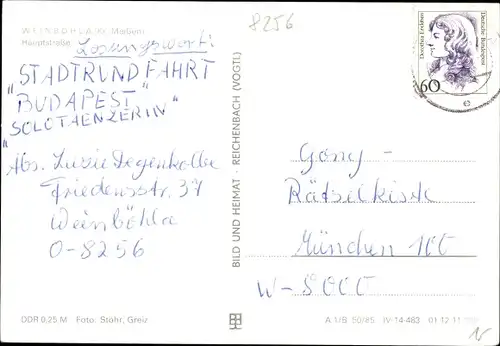 8256
WEINBÖHLA (Kr. Meißen)
Hauptstraße
Losungswort:
"STADTRUNDFAHRT
"BUDAPEST"
"SOLOTAENZERIN"
Abs. Luzie Degenkolbe
Friedensstr. 37
Weinböhla
O-8256
DDR 0,25 M Foto: Stöhr, Greiz
BILD UND HEIMAT · REICHENBACH (VOGTL)
Dorothea Erxleben
Deutsche Bundespost
60
Gong-
Rätselkiste
München 100
W-8000
A 1/B 50/85 IV-14-483 01 12 11